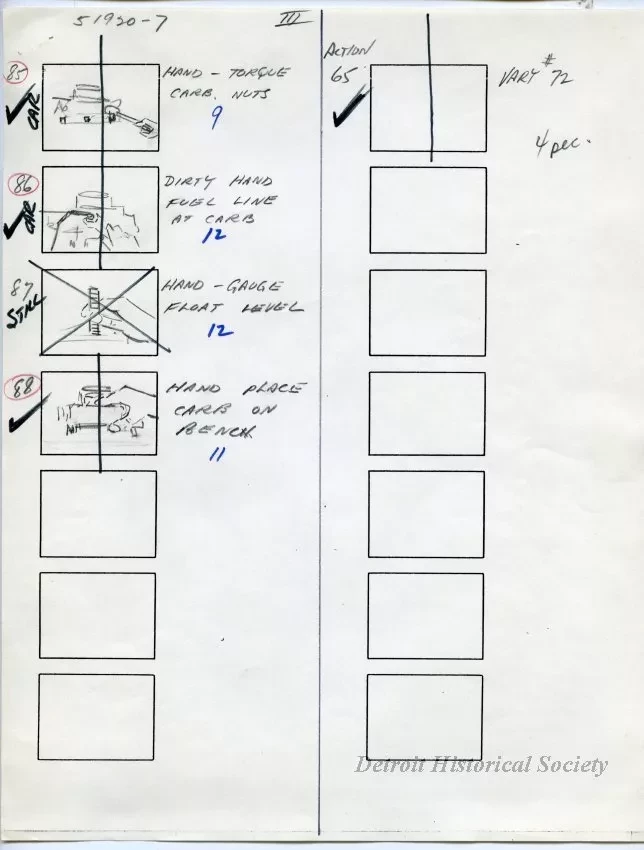 51920-7
III
85
CAR
HAND - TORQUE
CARB. NUTS
9
86
CAR
DIRTY HAND
FUEL LINE
AT CARB
12
87
STILL
HAND - GAUGE
FLOAT LEVEL
12
88
HAND PLACE
CARB ON
BENCH
11
ACTION
65
VARY #72
Detroit Historical Society